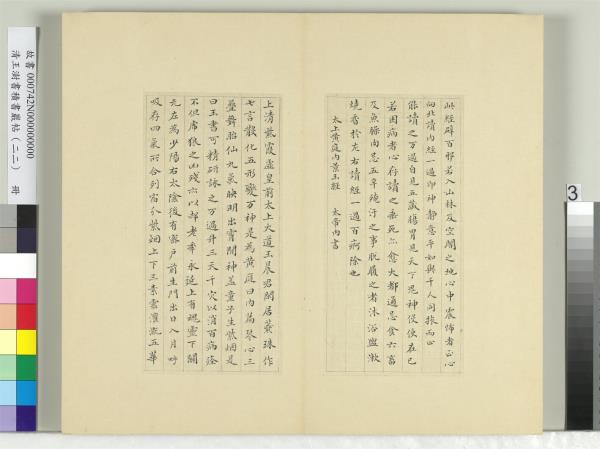 此經辟百邪若入山林及空闇之地心中震怖者正心
向北讀內經一過即神靜意平如與千人同旅而止
能讀之万過自見五藏腸胃見天下鬼神役使在己
若困病者心存讀之垂死亦愈大都通忌食六畜
及魚臊肉忌五辛殗汙之事脫履之者沐浴盥漱
燒香於左右讀經一過百痾除也
太上黃庭內景玉經 太帝內書
上清紫霞虛皇前太上大道玉晨君閒居蕊珠作
七言散化五形變万神是為黃庭曰內篇琴心三
疊舞胎仙九氣映明出霄間神蓋童子生紫烟是
曰玉書可精研詠之万過昇三天千灾以消百病痊
不但虎狼之凶殘亦以却老年永延上有魂靈下關
元左為少陽右太陰後有密戶前生門出日入月呼
吸存四氣所合列宿分紫烟上下三素雲灌溉五華
故書 000742N000000000
清王澍書積書巖帖(二二) 冊
3